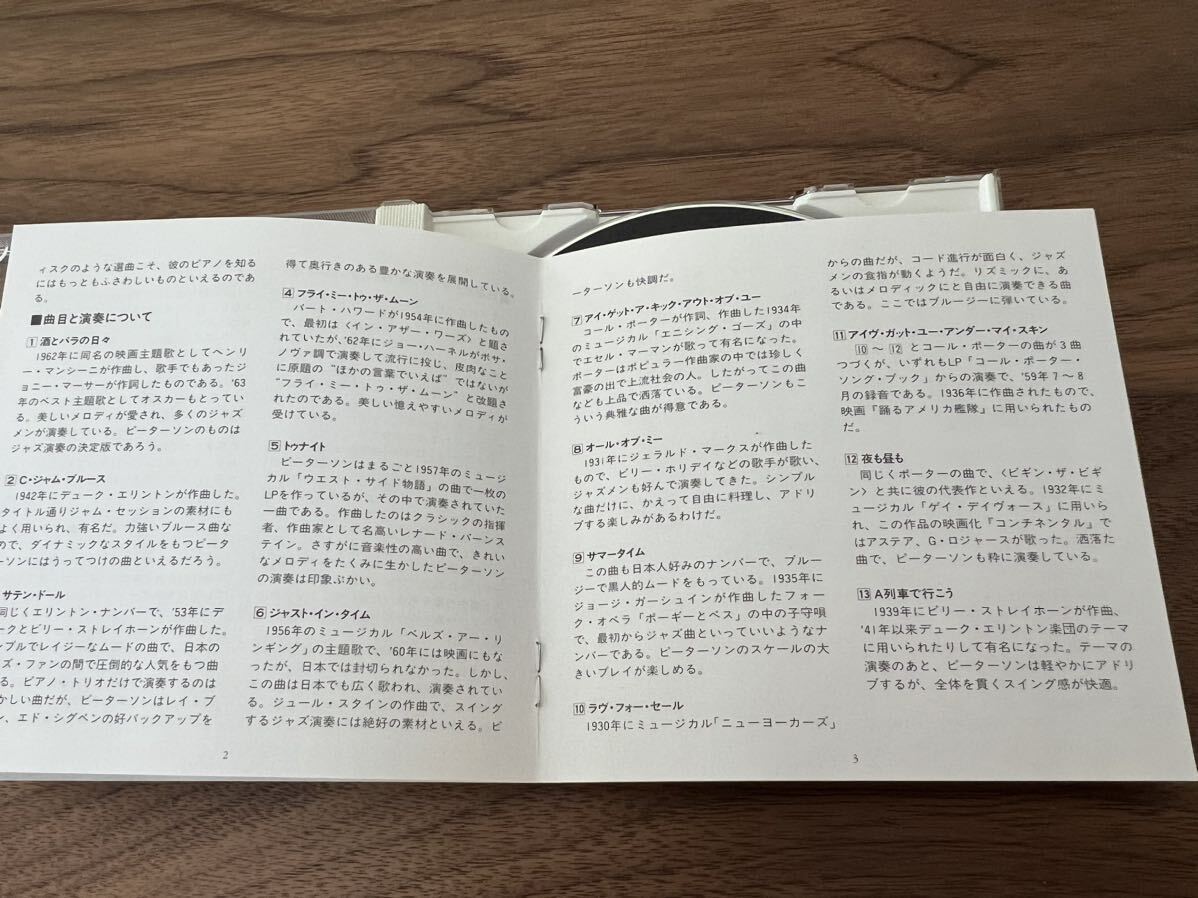 ィスクのような選曲こそ、彼のピアノを知る
にはもっともふさわしいものといえるのであ
る。
■曲目と演奏について
1 酒とバラの日々
1962年に同名の映画主題歌としてヘンリ
ー・マンシーニが作曲し、歌手でもあったジ
ョニー・マーサーが作詞したものである。'63
年のベスト主題歌としてオスカーもとってい
る。美しいメロディが愛され、多くのジャズ
メンが演奏している。ピーターソンのものは
ジャズ演奏の決定版であろう。
2 C・ジャム・ブルース
1942年にデューク・エリントンが作曲した。
タイトル通りジャム・セッションの素材にも
よく用いられ、有名だ。力強いブルース曲な
ので、ダイナミックなスタイルをもつピータ
ーソンにはうってつけの曲といえるだろう。
サテン・ドール
同じくエリントン・ナンバーで、'53年にデ
ークとビリー・ストレイホーンが作曲した。
ンプルでレイジーなムードの曲で、日本の
ズ・ファンの間で圧倒的な人気をもつ曲
る。ピアノ・トリオだけで演奏するのは
かしい曲だが、ピーターソンはレイ・ブ
ン、エド・シグペンの好バックアップを
2
得て奥行きのある豊かな演奏を展開している。
4 フライ・ミー・トゥ・ザ・ムーン
バート・ハワードが1954年に作曲したもの
で、最初は〈イン・アザー・ワーズ〉と題さ
れていたが、'62年にジョー・ハーネルがボサ・
ノヴァ調で演奏して流行に投じ、皮肉なこと
に原題の“ほかの言葉でいえば”ではないが
“フライ・ミー・トゥ・ザ・ムーン”と改題さ
れたのである。美しい憶えやすいメロディが
受けている。
5 トゥナイト
ピーターソンはまるごと1957年のミュージ
カル「ウエスト・サイド物語」の曲で一枚の
LPを作っているが、その中で演奏されていた
一曲である。作曲したのはクラシックの指揮
者、作曲家として名高いレナード・バーンス
テイン。さすがに音楽性の高い曲で、きれい
なメロディをたくみに生かしたピーターソン
の演奏は印象ぶかい。
6 ジャスト・イン・タイム
1956年のミュージカル「ベルズ・アー・リ
ンギング」の主題歌で、'60年には映画にもな
ったが、日本では封切られなかった。しかし、
この曲は日本でも広く歌われ、演奏されてい
る。ジュール・スタインの作曲で、スイング
するジャズ演奏には絶好の素材といえる。ピ
ーターソンも快調だ。
7 アイ・ゲット・ア・キック・アウト・オブ・ユー
コール・ポーターが作詞、作曲した1934年
のミュージカル「エニシング・ゴーズ」の中
でエセル・マーマンが歌って有名になった。
ポーターはポピュラー作曲家の中では珍しく
富豪の出で上流社会の人。したがってこの曲
なども上品で洒落ている。ピーターソンもこ
ういう典雅な曲が得意である。
8 オール・オブ・ミー
1931年にジェラルド・マークスが作曲した
もので、ビリー・ホリデイなどの歌手が歌い、
ジャズメンも好んで演奏してきた。シンプル
な曲だけに、かえって自由に料理し、アドリ
ブする楽しみがあるわけだ。
9 サマータイム
この曲も日本人好みのナンバーで、ブルー
ジーで黒人的ムードをもっている。1935年に
ジョージ・ガーシュインが作曲したフォー
ク・オペラ「ポーギーとベス」の中の子守唄
で、最初からジャズ曲といっていいようなナ
ンバーである。ピーターソンのスケールの大
きいプレイが楽しめる。
10 ラヴ・フォー・セール
1930年にミュージカル「ニューヨーカーズ」
3
からの曲だが、コード進行が面白く、ジャズ
メンの食指が動くようだ。リズミックに、あ
るいはメロディックにと自由に演奏できる曲
である。ここではブルージーに弾いている。
11 アイヴ・ガット・ユー・アンダー・マイ・スキン
10〜12とコール・ポーターの曲が3曲
つづくが、いずれもLP「コール・ポーター・
ソング・ブック」からの演奏で、'59年7〜8
月の録音である。1936年に作曲されたもので、
映画『踊るアメリカ艦隊』に用いられたもの
だ。
12 夜も昼も
同じくポーターの曲で、〈ビギン・ザ・ビギ
ン〉と共に彼の代表作といえる。1932年にミ
ュージカル「ゲイ・デイヴォース」に用いら
れ、この作品の映画化『コンチネンタル』で
はアステア、G・ロジャースが歌った。洒落た
曲で、ピーターソンも粋に演奏している。
13 A列車で行こう
1939年にビリー・ストレイホーンが作曲、
'41年以来デューク・エリントン楽団のテーマ
に用いられたりして有名になった。テーマの
演奏のあと、ピーターソンは軽やかにアドリ
ブするが、全体を貫くスイング感が快適。